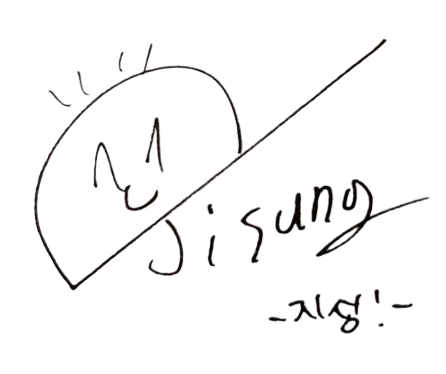 Jisung
-지성!-